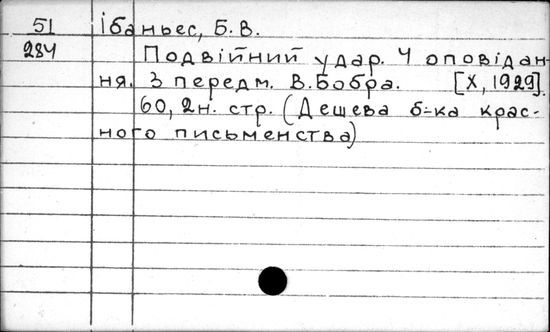 51 Ібаньес, Б. В.
284 Подвійний удар. 4 оповідан-
ня. З передм. В. Бобра. [Х, 1929].
60, 2н. стр. (Дешева б-ка крас-
ного письменства)